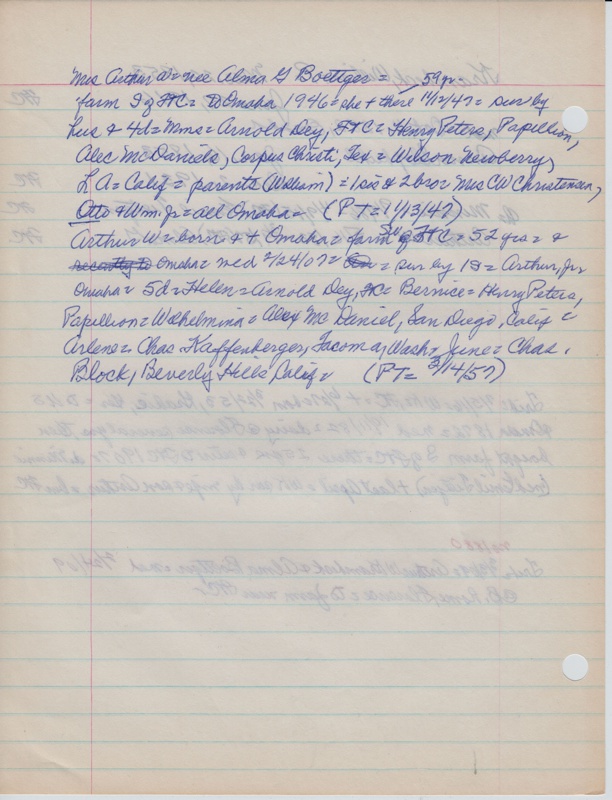 Mrs Arthur W = nee Alma G Boettger = 59 yr =
farm S of FtC = to Omaha 1946 = she + there 11/12/47 = sur by
hus & 4d = Mmes = Arnold Dey, FtC = Henry Peters, Papillion,
Alec McDaniels, Corpus Christi, Tex = Wilson Newberry,
LA = Calif = parents (William) = 1 sis & 2 bro = Mrs CW Christensen,
Otto & Wm. Jr = all Omaha = (PT = 11/13/47)
Arthur W = born & + Omaha = farm SW of FtC = 52 yrs = &
recently to Omaha = med 2/24/07 = = sur by 1s = Arthur, Jr
Omaha = 5d = Helen = Arnold Dey, FtC = Bernice = Henry Peters,
Papillion = Wilhelmina = Alex McDaniel, San Diego, Calif =
Arlene = Chas Kaffenberger, Tacoma, Wash = June = Chas.
Block, Beverly Hills, Calif = (PT = 3/14/57)